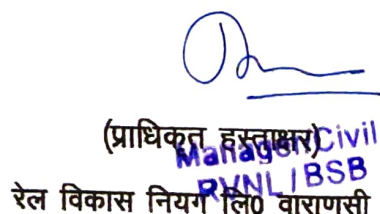 (प्राधिकृत हस्ताक्षर)
Manager Civil
RVNL / BSB
रेल विकास नियग लि0 वाराणसी